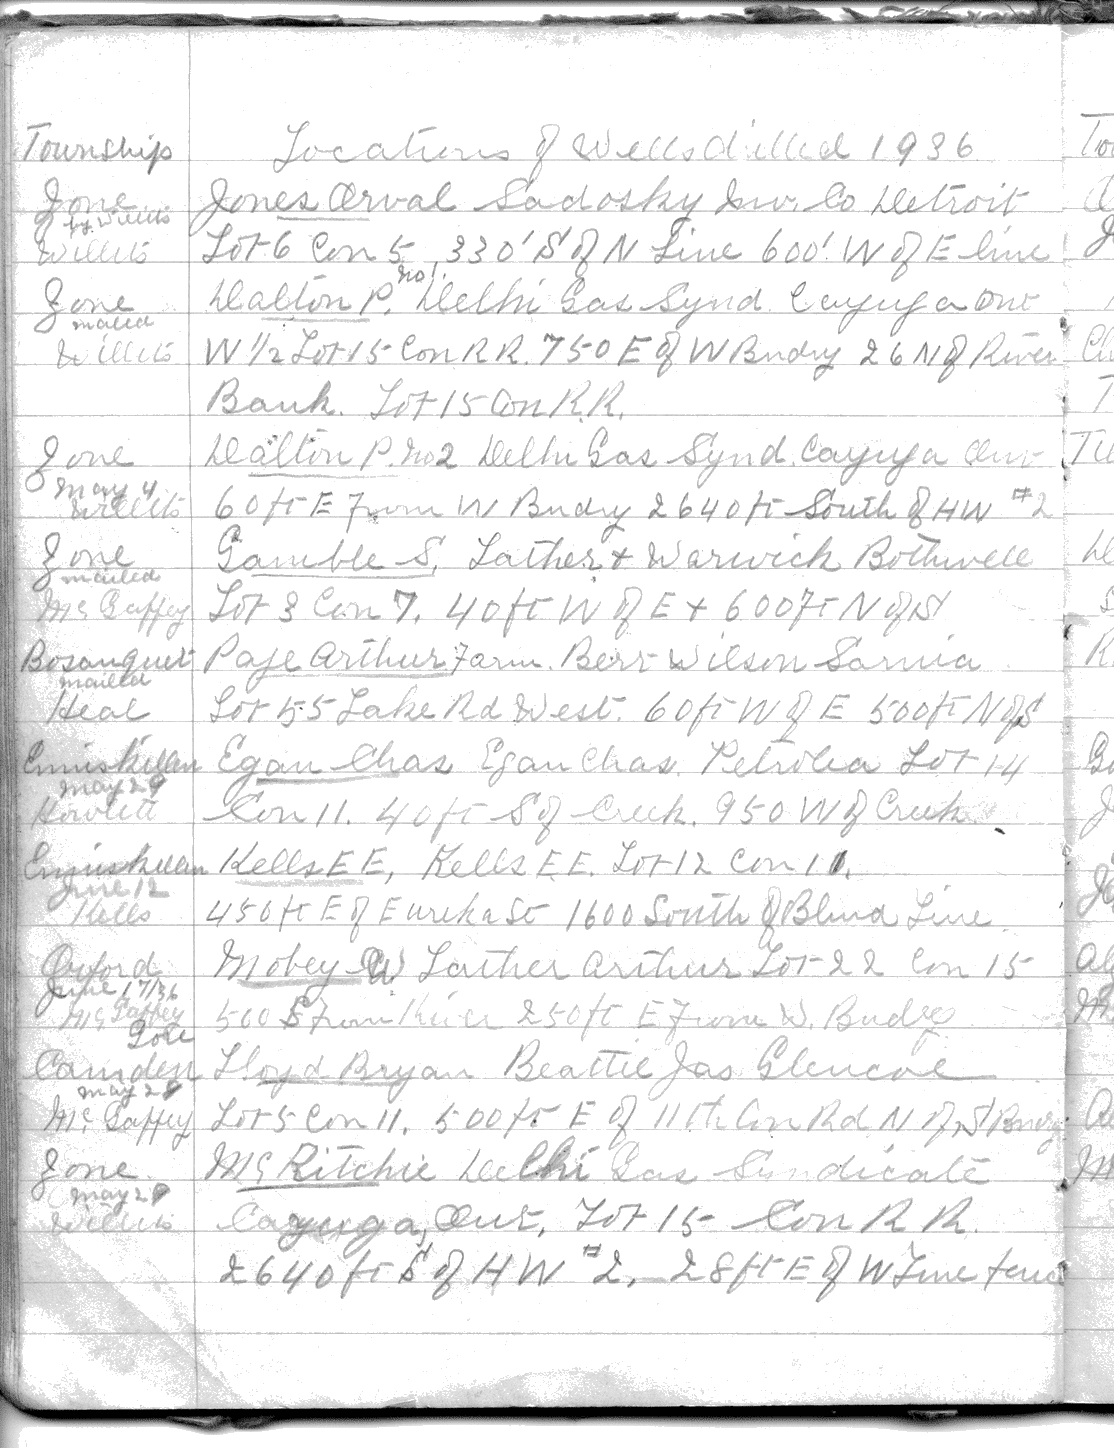 Township Locations of Wells drilled 1936
Zone Jones Orval Sadosky Inv. Co Detroit
by Willits
Willits Lot 6 Con 5 330' S of N Line 600' W of E line
Zone Dalton P. No 1. Delhi Gas Synd. Cayuga Ont
mailed
Willits W 1/2 Lot 15 Con R R. 750 E of W Bndry 26 N of River
Bank. Lot 15 Con R.R.
Zone Dalton P. No 2 Delhi Gas Synd. Cayuga Ont
May 4
Willits 60 ft E From W Bndry 2640 ft South of HW #2
Zone Gamble S, Lather & Warwick Bothwell
mailed
McGaffey Lot 3 Con 7. 40 ft W of E & 600 ft N of S
Bosanquet Page Arthur Farm. Bert Wilson Sarnia
mailed
Heal Lot 55 Lake Rd West. 60 ft W of E 500 ft N of S
Enniskillen Egan Chas Egan Chas. Petrolea Lot 14
May 29
Howlett Con 11. 40 ft S of Creek. 950 W of Creek
Enniskillen Kells E E, Kells E E. Lot 12 Con 11.
June 12
Kells 450 ft E of Eureka St 1600 South of Blind Line
Oxford Mobey W Lather Arthur Lot 22 Con 15
June 17/36
McGaffey 500 S From River 250 ft E From W. Bndry
Gore
Camden Lloyd Bryan Beattie Jas Glencoe
May 28
McGaffey Lot 5 Con 11. 500 ft E of 11th Con Rd N of S Bndry
Zone McRitchie Delhi Gas Syndicate
May 29
Willits Cayuga, Ont, Lot 15 Con R R.
2640 ft S of HW #2. 28 ft E of W Line fence